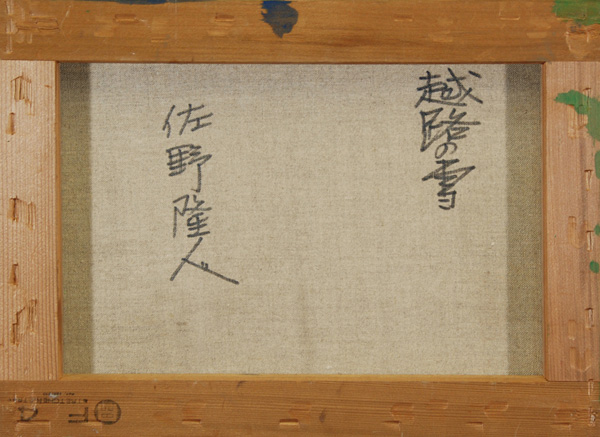 越路の雪
佐野隆人
F4